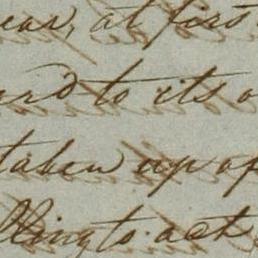 ear, at first
ard to its o
taken up of
lling to act